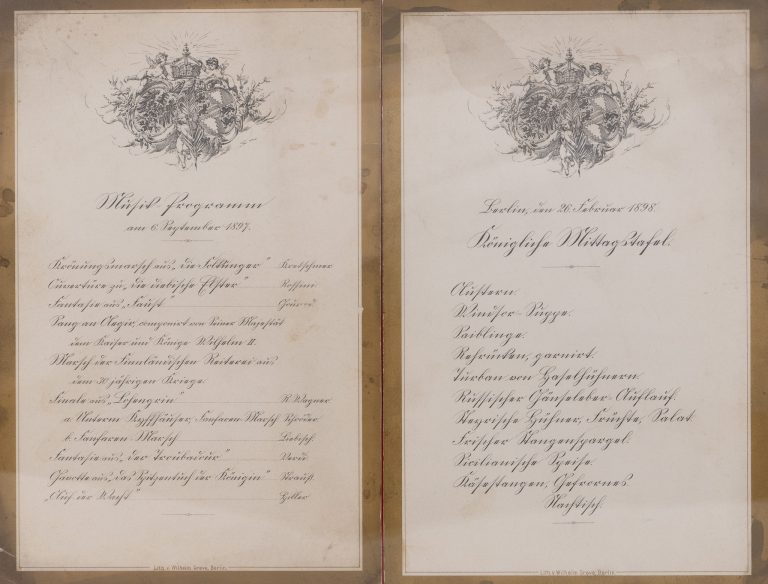 Musik-Programm
am 6. September 1897.
Krönungsmarsch aus „Die Folkunger" Kretschmer
Ouverture zu „Die diebische Elster" Rossini
Fantasie aus „Faust" Gounod
Sang an Aegir, componirt von Seiner Majestät
dem Kaiser und Könige Wilhelm II.
Marsch der Finnländischen Reiterei aus
dem 30 jährigen Kriege.
Finale aus „Lohengrin" R. Wagner
a. Unterm Kyffhäuser, Fanfaren-Marsch Schröder
b. Fanfaren-Marsch Liebisch
Fantasie aus „Der Troubadour" Verdi
Gavotte aus „Das Spitzentuch der Königin" Strauß.
„Auf der Wacht" Hiller
Lith. v. Wilhelm Greve, Berlin.
Berlin, den 26. Februar 1898.
Königliche Mittagstafel.
Austern.
Windsor-Suppe.
Saiblinge.
Rehrücken, garnirt.
Turban von Haselhühnern.
Russischer Gänseleber-Auflauf.
Steyrische Hühner, Früchte, Salat.
Frischer Stangenspargel.
Sicilianische Speise.
Käsestangen, Gefrornes
Nachtisch.
Lith. v. Wilhelm Greve, Berlin.